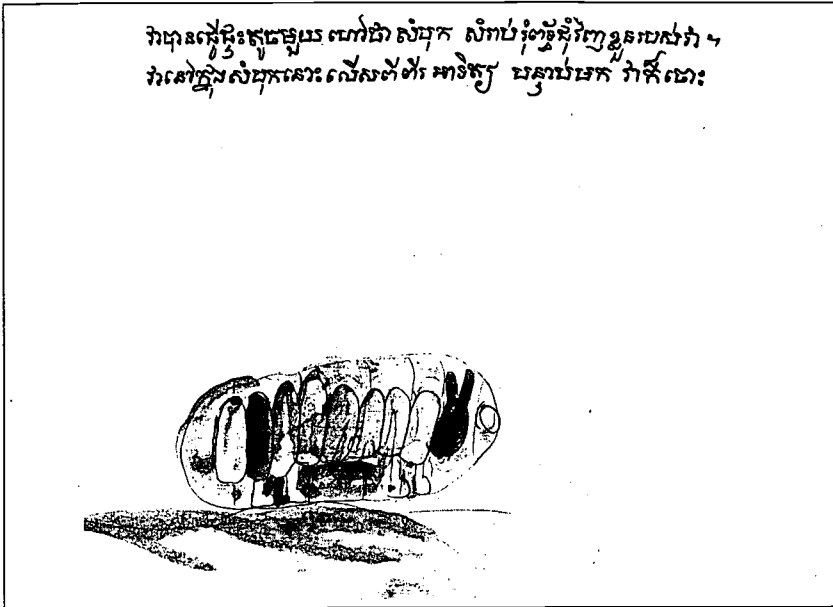 វាបានធ្វើផ្ទះតូចមួយ ហៅថា សំបុក សំរាប់រុំព័ទ្ធជុំវិញខ្លួនរបស់វា ។
វានៅក្នុងសំបុកនោះ លើសពីពីរ អាទិត្យ បន្ទាប់មក វាក៏ចោះ